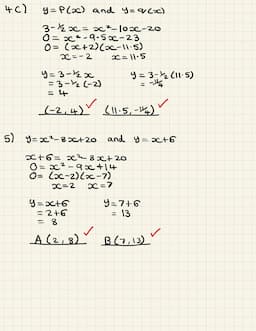 4c) y=P(x) and y=Q(x)
3-½x = x²-10x-20
0 = x²-9·5x-23
0= (x+2)(x-11·5)
x=-2 x=11·5
y=3-½x y=3-½(11·5)
=3-½(-2) = -11/4
= 4
(-2,4) ✓ (11·5, -11/4) ✓
5) y=x²-8x+20 and y=x+6
x+6= x²-8x+20
0= x²-9x+14
0= (x-2)(x-7)
x=2 x=7
y=x+6 y=7+6
=2+6 = 13
= 8
A(2,8) ✓ B(7,13) ✓